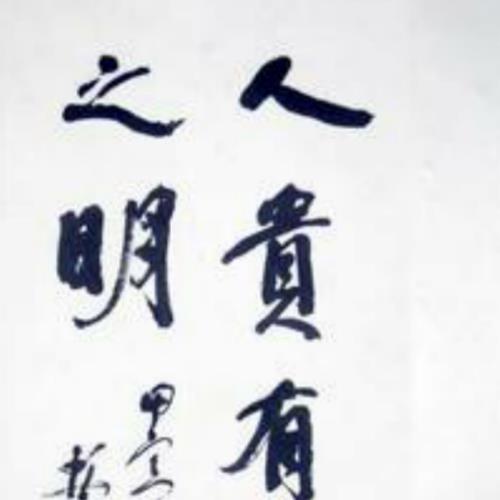 人貴有
之明
甲